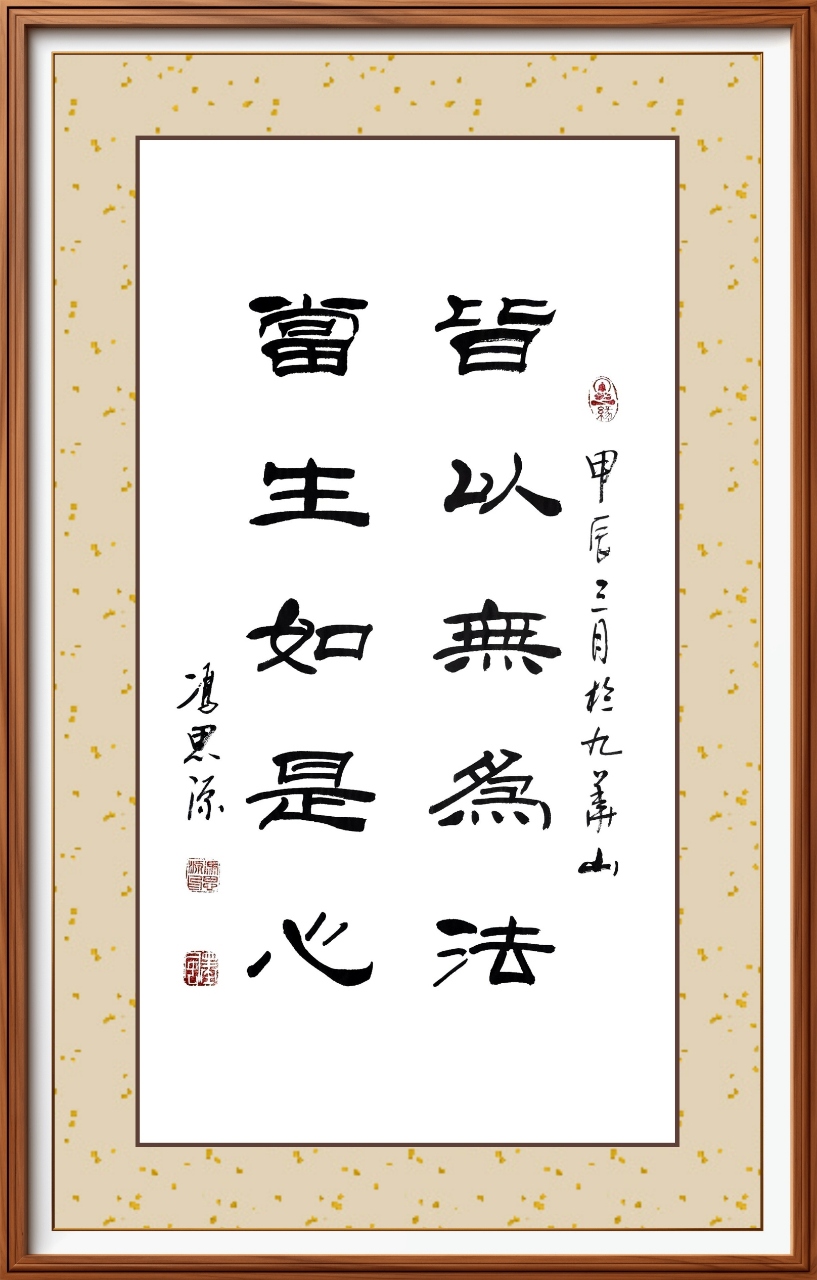 甲辰三月於九華山
皆以無為法
當生如是心
馮思源